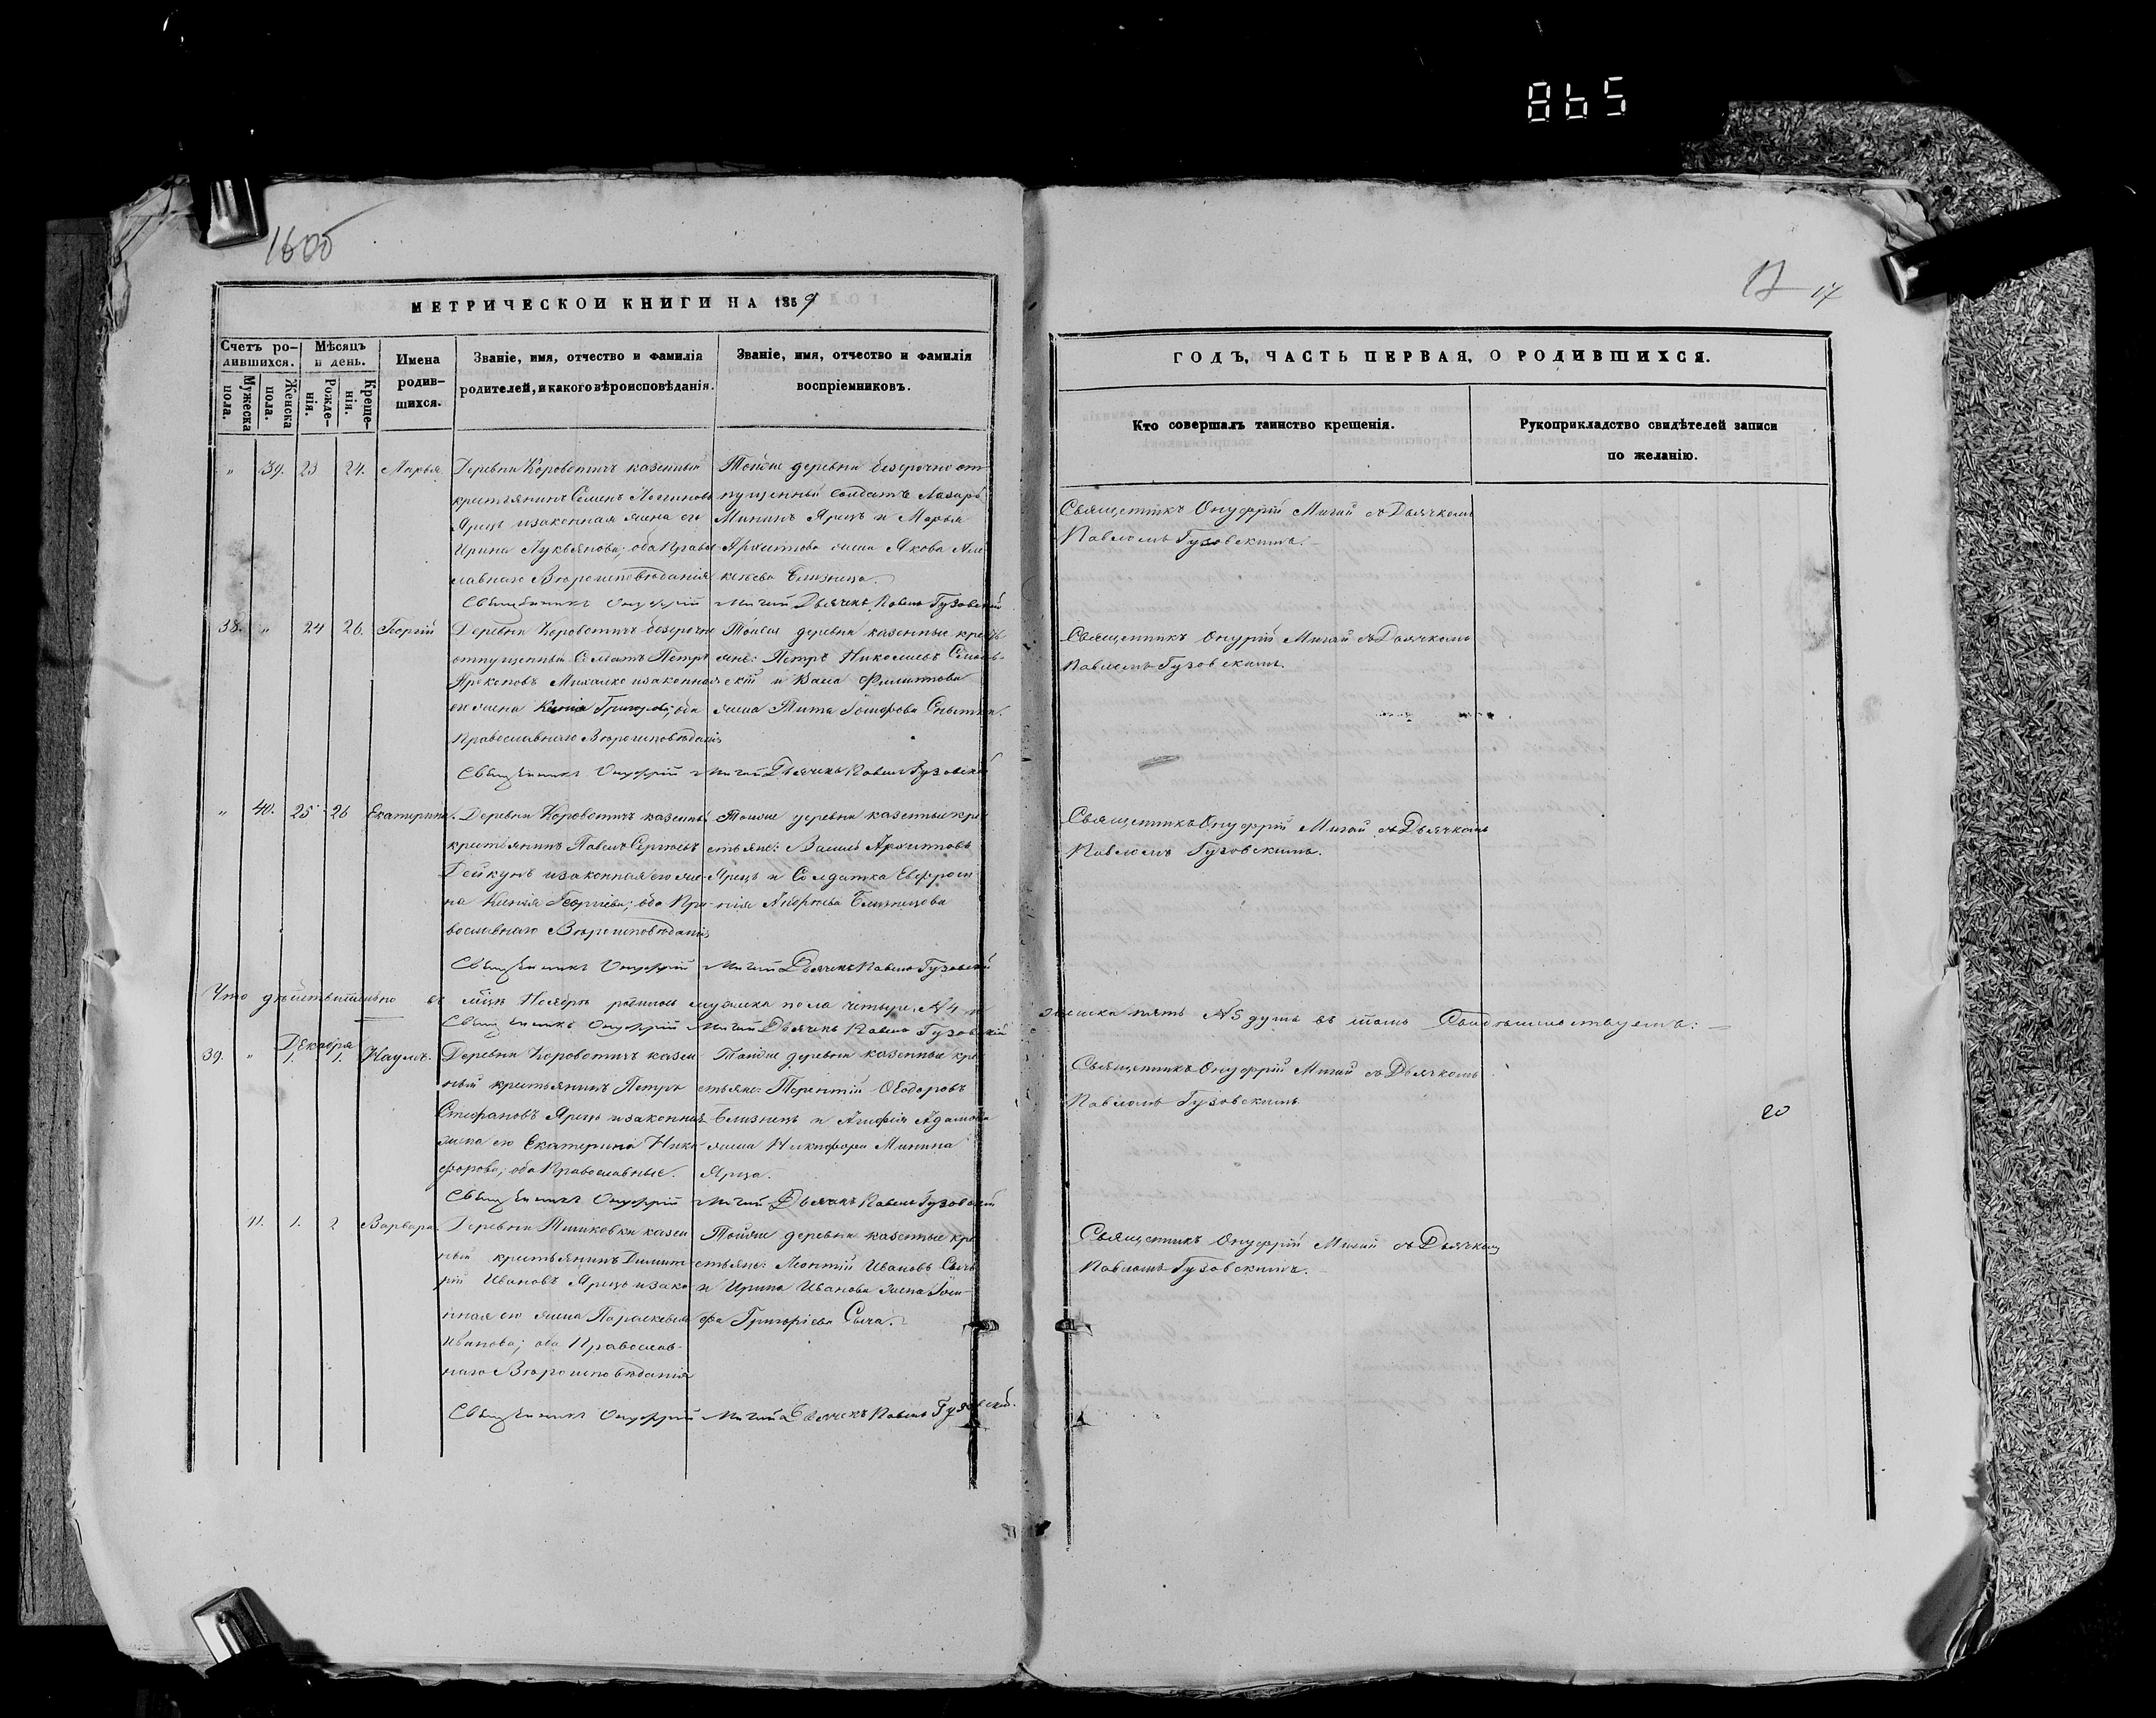 865
1600
17
МЕТРИЧЕСКОЙ КНИГИ НА 1859
Счетъ ро-
дившихся.
Мужеска пола.
Женска пола.
Мѣсяцъ
и день.
Рожде-
нія.
Креще-
нія.
Имена
родив-
шихся.
Званіе, имя, отчество и фамилія
родителей, и какого вѣроисповѣданія.
Званіе, имя, отчество и фамилія
воспріемниковъ.
" 39. 23 24. Марья.
Деревни Коровотичъ казенный
крестьянинъ Семенъ
Ярецъ и законная жена его
Ирина Лукьянова; оба Право
славнаго Вѣроисповѣданія
Тойже деревни безсрочно от
пущенный солдатъ Лазарь
Мининъ Ярецъ и Марья
Архипова жена Якова Але
ксѣева Близнеца.
Священникъ Онуфрій Мигай Дьячекъ Павелъ Гузовскій
38. " 24 26. Георгій
Деревни Коровотичъ безсрочно
отпущенный Солдатъ Петръ
Михалко и законная
его жена Ксенія Григорьева; оба
Православнаго Вѣроисповѣданія
Тойже деревни казенные кресть
яне: Петръ Николаевъ
и Васса Филиппова
жена Тита Іосифова
Священникъ Онуфрій Мигай Дьячекъ Павелъ Гузовскій
" 40. 25 26 Екатерина.
Деревни Коровотичъ казенный
крестьянинъ Павелъ Сергѣевъ
Дейкунъ и законная его же-
на Ксенія Георгіева; оба Пра-
вославнаго Вѣроисповѣданія
Тойже деревни казенные кре
стьяне: Василь Архиповъ
Ярецъ и Солдатка Евфроси
нія Андреева Близнецова
Священникъ Онуфрій Мигай Дьячекъ Павелъ Гузовскій
Что дѣйствительно въ мѣцѣ Ноябрѣ родилось мужеска пола четыре №4 и
Священникъ Онуфрій Мигай Дьячекъ Павелъ Гузовскій
Декабря
39. " 1. 1. Наумъ.
Деревни Коровотичъ казен
ный крестьянинъ Петръ
Стефановъ Ярецъ и законная
жена его Екатерина Ники
форова; оба Православные.
Тойже деревни казенные кре
стьяне: Терентій Ѳеодоровъ
Близнецъ и Агафія Адамова
жена Никифора Минина
Ярца.
Священникъ Онуфрій Мигай Дьячекъ Павелъ Гузовскій
41. 1. 2 Варвара.
Деревни казен
ный крестьянинъ Димит
рій Ивановъ Ярецъ и зако
нная его жена Параскевія
Иванова; оба Православ-
наго Вѣроисповѣданія
Тойже деревни казенные кре
стьяне: Леонтій Ивановъ Сычъ
и Ирина Иванова жена Іоси
фа Григоріева Сыча.
Священникъ Онуфрій Мигай Дьячекъ Павелъ Гузовскій.
17
ГОДЪ, ЧАСТЬ ПЕРВАЯ, О РОДИВШИХСЯ.
Кто совершалъ таинство крещенія.
Рукоприкладство свидѣтелей записи
по желанію.
Священникъ Онуфрій Мигай съ Дьячкомъ
Павломъ Гузовскимъ.
Священникъ Онуфрій Мигай съ Дьячкомъ
Павломъ Гузовскимъ.
Священникъ Онуфрій Мигай съ Дьячкомъ
Павломъ Гузовскимъ.
женска пять №5 душъ въ томъ Свидѣтельствуемъ:
Священникъ Онуфрій Мигай съ Дьячкомъ
Павломъ Гузовскимъ.
20
Священникъ Онуфрій Мигай съ Дьячкомъ
Павломъ Гузовскимъ.